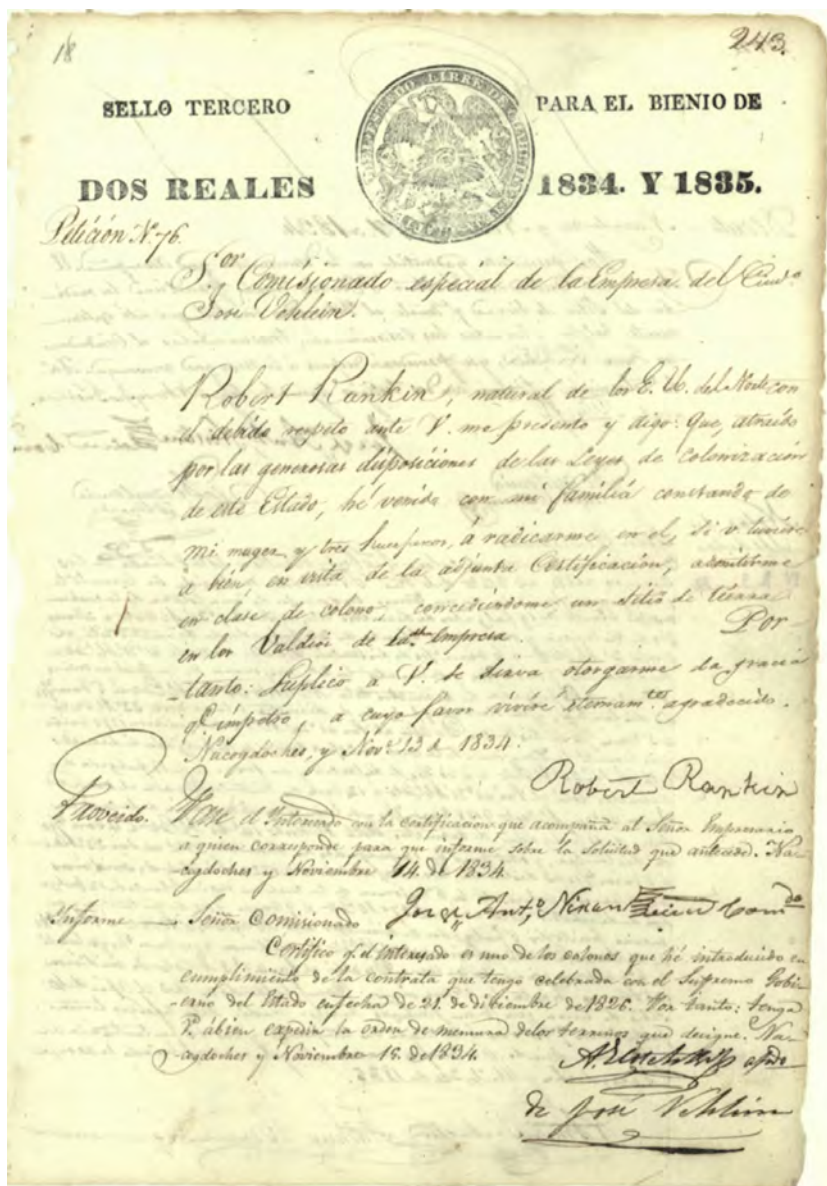 18
243.
SELLO TERCERO
PARA EL BIENIO DE
DOS REALES
1834. Y 1835.
Petición Nº. 76.
Sor. Comisionado especial de la Empresa del Ciudº.
José Vehlein.
Robert Rankin, natural de los E. U. del Norte con
el debido respeto ante V. me presento y digo: Que, atraido
por las generosas disposiciones de las Leyes de Colonización
de este Estado, hé venido con mi familia constando de
mi muger y tres huerfanos, á radicarme en el, si V. tuviere
a bien, en vista de la adjunta Certificación, admitirme
en clase de colono, concediendome un sitio de tierra
en los Valdios de Empresa. Por
-tanto: Suplico a V. se sirva otorgarme la gracia
qe. impetro, a cuyo favor viviré eternamte. agradecido.
Nacogdoches, y Nove. 13 de 1834.
Robert Rankin
Proveido. Pase el Interesado con la certificacion que acompaña al Señor Empresario
a quien corresponde para que informe sobre la solicitud que antecede. Na-
cogdoches y Noviembre 14. de 1834.
Jorge Antº. Nixon Comdo
Informe Señor Comisionado
Certifico q. el interesado es uno de los colonos que hé introducido en
cumplimiento de la contrata que tengo celebrada con el Supremo Gobi-
-erno del Estado en fecha de 21. de diciembre de 1826. Por tanto: tenga
V. ábien expedir la orden de mensura delos terrenos que designe. Na-
cogdoches y Noviembre 15. de 1834.
apdo
de José Vehlein